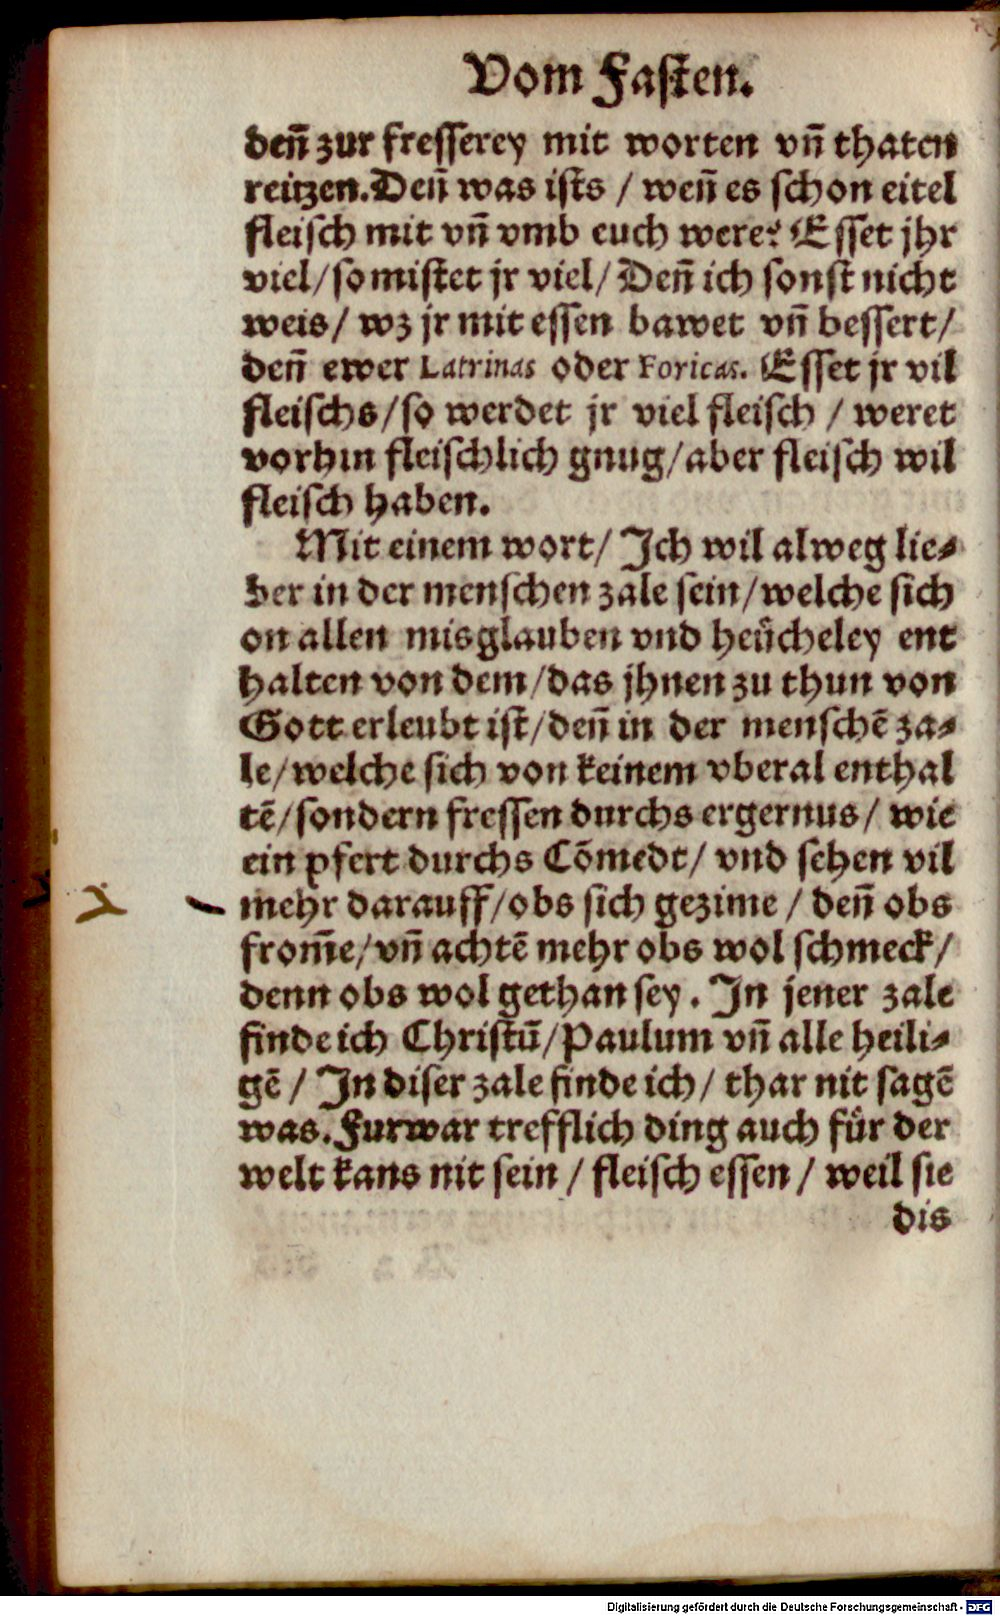 Vom Fasten.
deñ zur fresserey mit worten vñ thaten
reitzen. Deñ was ists / weñ es schon eitel
fleisch mit vñ vmb euch were? Esset jhr
viel / so mistet jr viel / Deñ ich sonst nicht
weis / wz jr mit essen bawet vñ bessert /
deñ ewer Latrinas oder Foricas. Esset jr vil
fleischs / so werdet jr viel fleisch / weret
vorhin fleischlich gnug / aber fleisch wil
fleisch haben.
Mit einem wort / Ich wil alweg lie-
ber in der menschen zale sein / welche sich
on allen misglauben vnd heücheley ent
halten von dem / das jhnen zu thun von
Gott erleubt ist / deñ in der menschē za-
le / welche sich von keinem vberal enthal
tē / sondern fressen durchs ergernus / wie
ein pfert durchs Cōmedt / vnd sehen vil
mehr darauff / obs sich gezime / deñ obs
from̄e / vñ achtē mehr obs wol schmeck /
denn obs wol gethan sey. In jener zale
finde ich Christū / Paulum vñ alle heili-
gē / In diser zale finde ich / thar nit sagē
was. Furwar trefflich ding auch für der
welt kans nit sein / fleisch essen / weil sie
dis
Digitalisierung gefördert durch die Deutsche Forschungsgemeinschaft - DFG